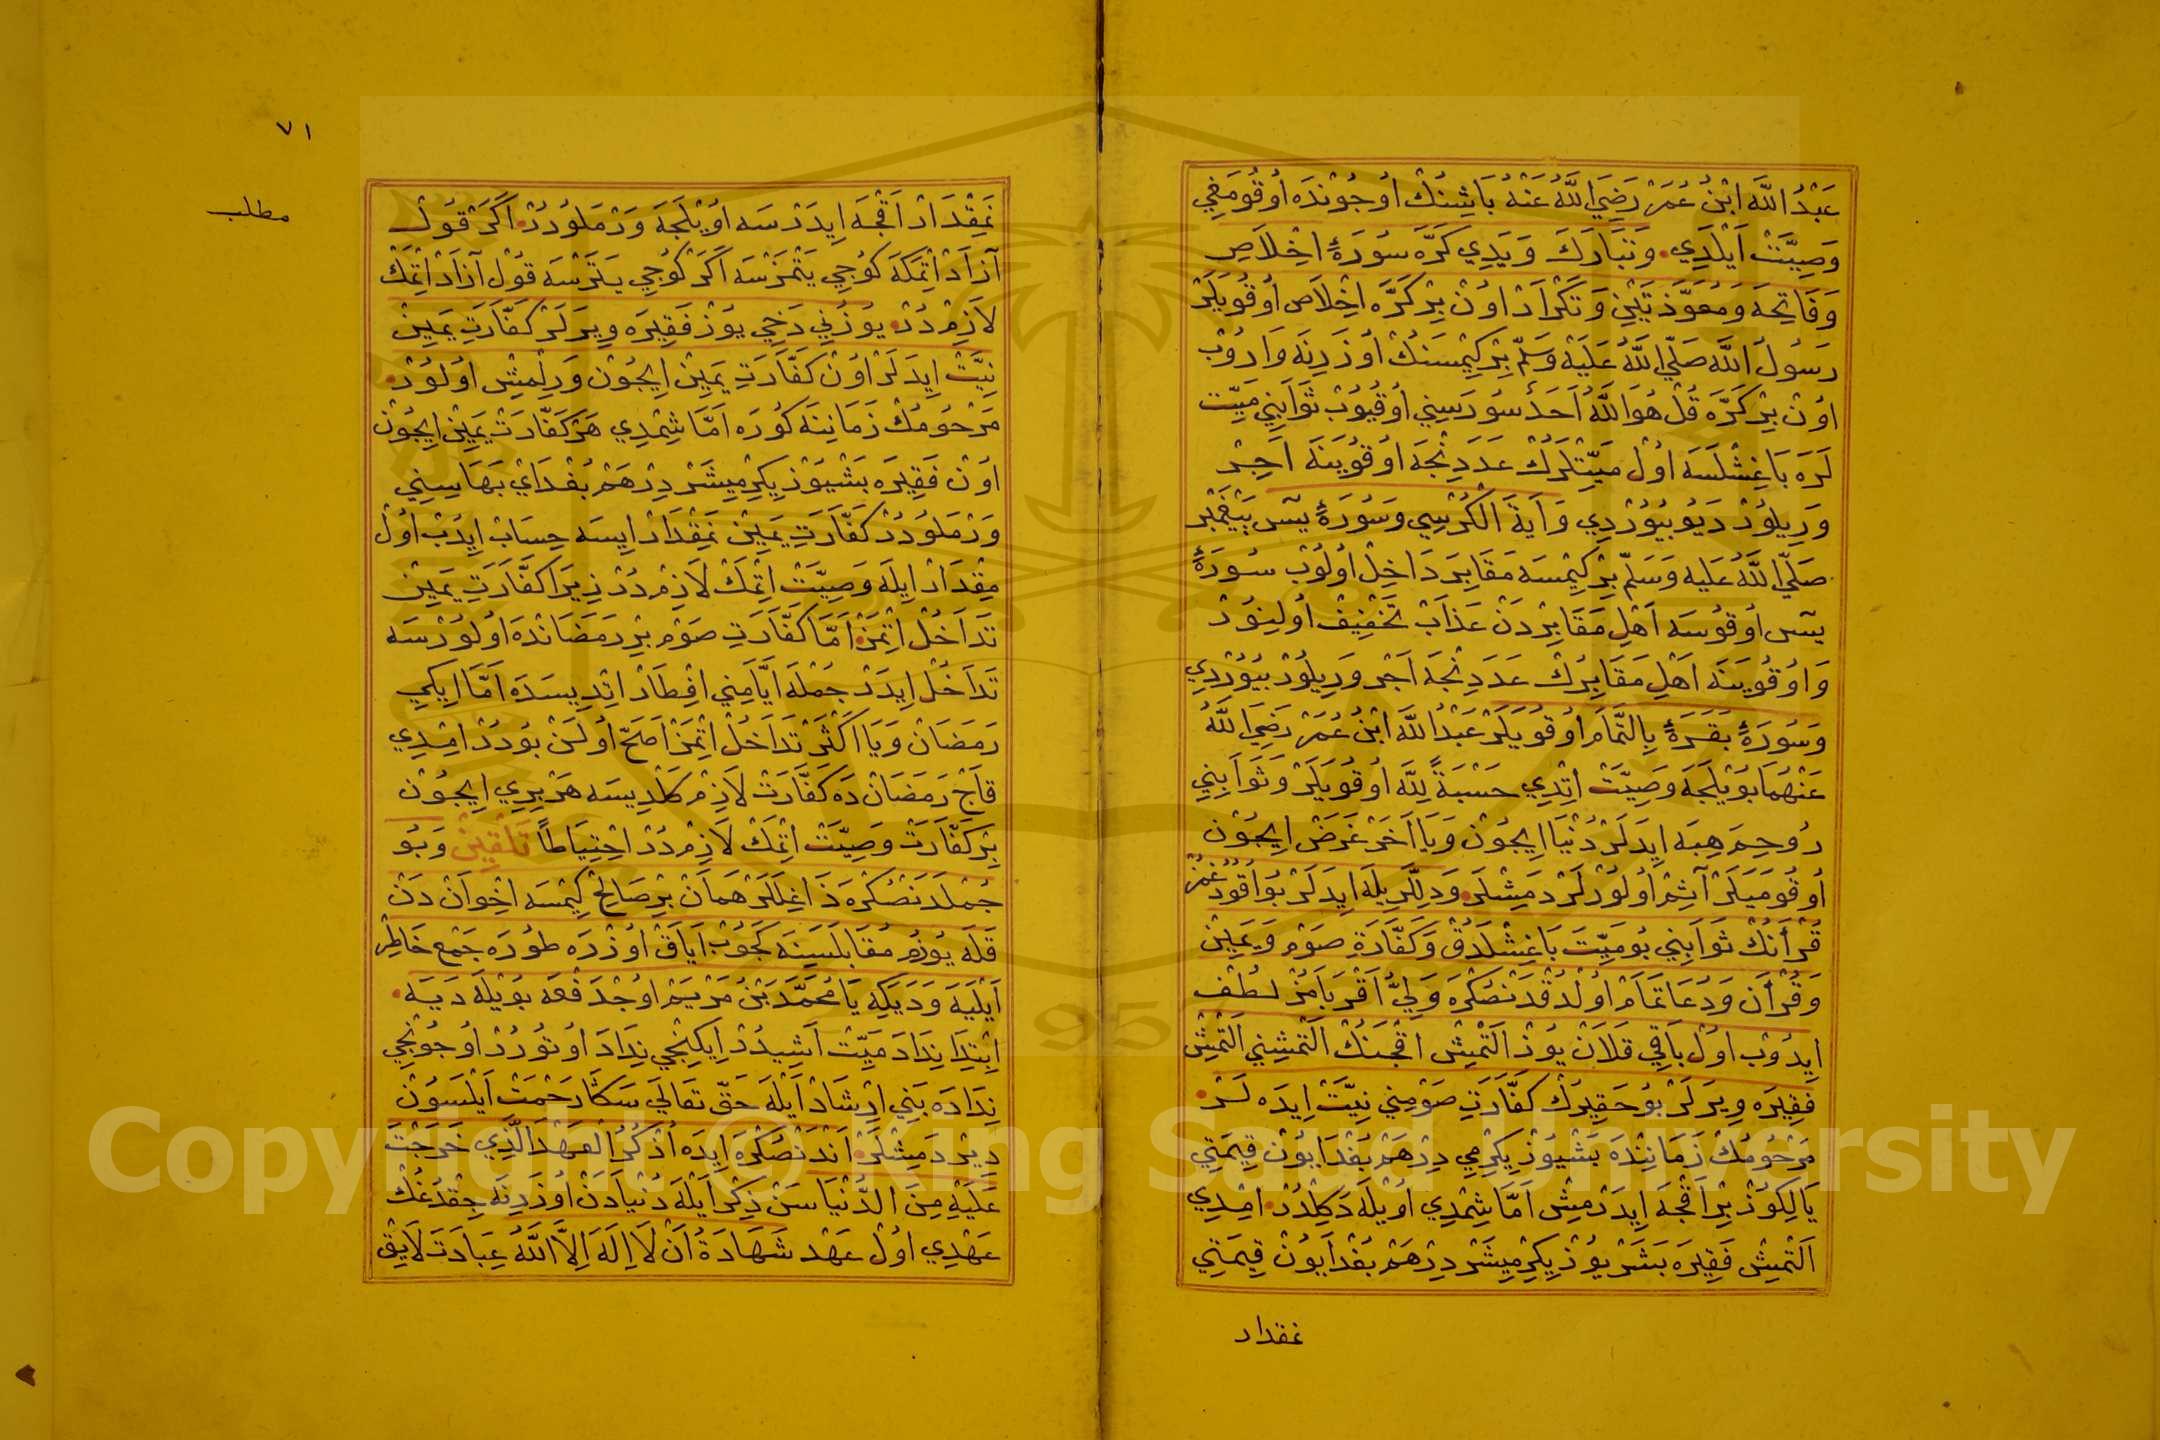 عَبْدُ اللَّه ابْنُ عُمَرْ رَضِيَ اللَّهُ عَنْهُ بَاشِنُكْ اُوجُونْدَه اُوقُومَغِي
وَصِيَّتْ اَيْلَدِي وَتَبَارَكَ وَيَدِي كَرَّه سُورَۀُ اِخْلَاصِ
وَفَاتِحَه وَمُعَوَّذَتَيْنِ وَتَكْرَارْ اوُنْ بِرْ كَرَّه اِخْلَاص اوُقُويَلَرْ
رَسُولُ اللَّه صَلَّي اللَّهُ عَلَيْهِ وَسَلَّمَ بِرْ كِيمْسَنُكْ اوُزَرِنَه وَارُوبْ
اوُنْ بِرْ كَرَّه قُلْ هُوَ اللَّهُ اَحَدْ سُورَسِنِي اوُقُيُوبْ ثَوَابِنِي مَيِّت
لَرَه بَاغِشْلَسَه اوُلْ مَيِّتْلَرِكْ عَدَدِنْجَه اوُقُويَنَه اَجِرْ
وَرِيلوُرْ دَيُو بُيُوُرْدِي وَاَيَةَ الْكُرْسِي وَسُورَۀُ يسۤ پَيْغَمْبَرْ
صَلَّي اللَّهُ عَلَيه وَسَلَّمْ بِرْ كِيمْسَه مَقَابِرَ دَاخِلْ اوُلُوبْ سُورَۀُ
يسۤ اوُقُوسَه اَهْلِ مَقَابِرْدَنْ عَذَابْ تَخْفِيفْ اوُلِنوُرْ
وَاوُقُويَنَه اَهْلِ مَقَابِرُكْ عَدَدِنْجَه اَجْر وَرِيلوُرْ بُيُوُرْدِي
وَسُورَۀُ بَقَرَۀُ بِالتَّمَامْ اوُقُويَلَرْ عَبْدُ اللَّه ابْنُ عُمَرْ رَضِيَ اللَّهُ
عَنْهُمَا بُويْلَجَه وَصِيَّتْ اِتْدِي حَسْبَةً لِلَّه اوُقُويَلَرْ وَثَوَابِنِي
رُوحِمَ هِبَه اِيدَلَرْ دُنْيَا اِيجُونْ وَيَا اَخَرْ غَرَضْ اِيجُونْ
اوُقُومَيَلَرْ آثِمْ اوُلوُرْلَرْ دِمِشْلَرْ وَدِلَّرِيلَه اِيدَلَرْ بُو اُقُودُغُمُزْ
قُرْأَنِكْ ثَوَابِنِي بُو مَيِّتَ بَاغِشْلَدُقْ وَكَفَّارَةِ صَوْم وَيَمِينْ
وَقُرْأَن وَدُعَا تَمَامْ اوُلْدُقْدَنْصُكْرَه وَلِيُّ اَقْرَبَامُزْ لُطْف
اِيدُوبْ اوُلْ بَاقِي قَلَانْ يوُزْ اَلْتْمِشْ اقْجَنُكْ اَلْتْمِشِنِي اَلْتْمِشْ
فَقِيرَه وِيرَلَرْ بُو حَقِيرُكْ كَفَّارَتِ صَوْمِنِي نِيَّتْ اِيدَه لَرْ
مَرْحُومُكْ زَمَانِنْدَه بَشْيوُزْ يِكِرْمِي دِرْهَمْ بُغْدَايُونْ قِيمَتِي
يَالِكوُزْ بِرْ اَقْجَه اِيدَرْمِشْ اَمَّا شِمْدِي اوُيْلَه دَكِلْدُرْ اِمْدِي
اَلْتْمِشْ فَقِيرَه بَشَرْ يوُزْ يِكِرْمِيشَرْ دِرْهَمْ بُغْدَايُونْ قِيمَتِي
نمقدار
٧١
مطلب
نَمِقْدَارْ اَقْجَه اِيدَرْسَه اوُيْلَجَه وَرْمَلوُدُرْ اَكَرْ قوُلْ
آزَادْ اِتْمَكَه كوُجِي يَتْمَزْسَه اَكَرْ كوُجِي يَتَرْسَه قوُلْ آزَادْ اِتْمَكْ
لَازِمْدُرْ يوُزُنِي دَخِي يوُزْ فَقِيرَه وِيرَلَرْ كَفَّارَتِ يَمِينْ
نِيَّتْ اِيدَلَرْ اوُنْ كَفَّارَتِ يَمِينْ اِيجُونْ وَرِلْمِشْ اوُلوُرْ
مَرْحُومُكْ زَمَانِنَه كوُرَه اَمَّا شِمْدِي هَرْ كَفَّارَتْ يَمِينْ اِيجُونْ
اوُنْ فَقِيرَه بَشْيوُزْ يِكِرْمِيشَرْ دِرْهَمْ بُغْدَايْ بَهَاسِنِي
وَرْمَلوُدُرْ كَفَّارَتِ يَمِينْ نَمِقْدَارْ اِيسَه حِسَابْ اِيدُبْ اوُلْ
مِقْدَارْ اِيلَه وَصِيَّتْ اِتْمَكْ لَازِمْدُرْ زِيرَا كَفَّارَتِ يَمِينْ
تَدَاخُلْ اِتْمَزْ اَمَّا كَفَّارَتِ صَوْم بِرْ رَمَضَانْدَه اوُلوُرْسَه
تَدَاخُلْ اِيدَرْ جُمْلَه اَيَّامِنِي اِفْطَارْ اِتْدِيسَدَه اَمَّا اِيكِي
رَمَضَان وَيَا اَكْثَرْ تَدَاخُلْ اِتْمَزْ اَصَحّ اوُلَنْ بُودُرْ اِمْدِي
قَاجْ رَمَضَانْدَه كَفَّارَتْ لَازِمْ كَلْدِيسَه هَرْ بِرِي اِيجُونْ
بِرْ كَفَّارَتْ وَصِيَّتْ اِتْمَكْ لَازِمْدُرْ اِحْتِيَاطًا تَلْقِينْ وَبُو
جُمْلَدَنْصُكْرَه دَاغِلَلَرْ هَمَانْ بِرْ صَالِحْ كِيمْسَه اِخْوَانْدَنْ
قَلَه يوُزُمْ مُقَابَلَسِنَه كَجُوبْ اَيَاقْ اوُزْرَه طوُرَه جَمْعِ خَاطِرْ
اَيْلِيَه وَدَيَكِه يَا مُحَمَّدَ بْنُ مَرْيَمْ اوُجْدَفْعَه بُويْلَه دَيَه
اِبْتِدَا نِدَادَ مَيِّتْ اَشِيدُرْ اِيكِنْجِي نِدَادَ اوُتوُرُرْ اوُجُونْجِي
نِدَادَه بَنِي اِرْشَادْ اَيْلَه حَقّ تَعَالَي سَكَا رَحْمَتْ اَيْلَسُونْ
دِيْر دِمِشْلَرْ اَنْدَنْصُكْرَه اِيدَه اُذْكُرْ الْعَهْدَ الَّذِي خَرَجْتَ
عَلَيْهِ مِنَ الدُّنْيَا سَنْ ذِكْر اَيْلَه دُنْيَادَنْ اوُزَرِنَه جِقْدُغُكْ
عَهْدِي اوُلْ عَهْد شَهَادَةُ اَنْ لَا اِلَهَ اِلَّا اللَّهُ عِبَادَتَ لَايِقْ
Copyright © King Saud University
1957